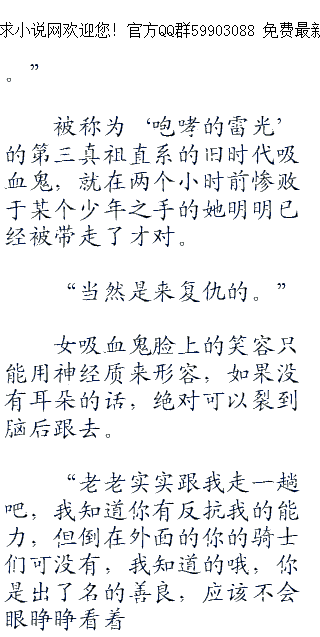 求小说网欢迎您! 官方QQ群59903088 免费最新
。”
被称为‘咆哮的雷光’
的第三真祖直系的旧时代吸
血鬼，就在两个小时前惨败
于某个少年之手的她明明已
经被带走了才对。
“当然是来复仇的。”
女吸血鬼脸上的笑容只
能用神经质来形容，如果没
有耳朵的话，绝对可以裂到
脑后跟去。
“老老实实跟我走一趟
吧，我知道你有反抗我的能
力，但倒在外面的你的骑士
们可没有，我知道的哦，你
是出了名的善良，应该不会
眼睁睁看着